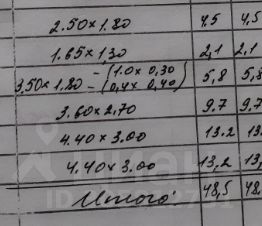 2.50×1.80 4.5 4,5
1.65×1,30 2,1 2,1
3.50×1.80 -(1.0×0,30) 5,8 5,8
-(0,4×0,40)
3.60×2,70 9.7 9.7
4.40×3.00 13.2 13.
4.40×3.00 13,2 13,
Итого: 48,5 48.